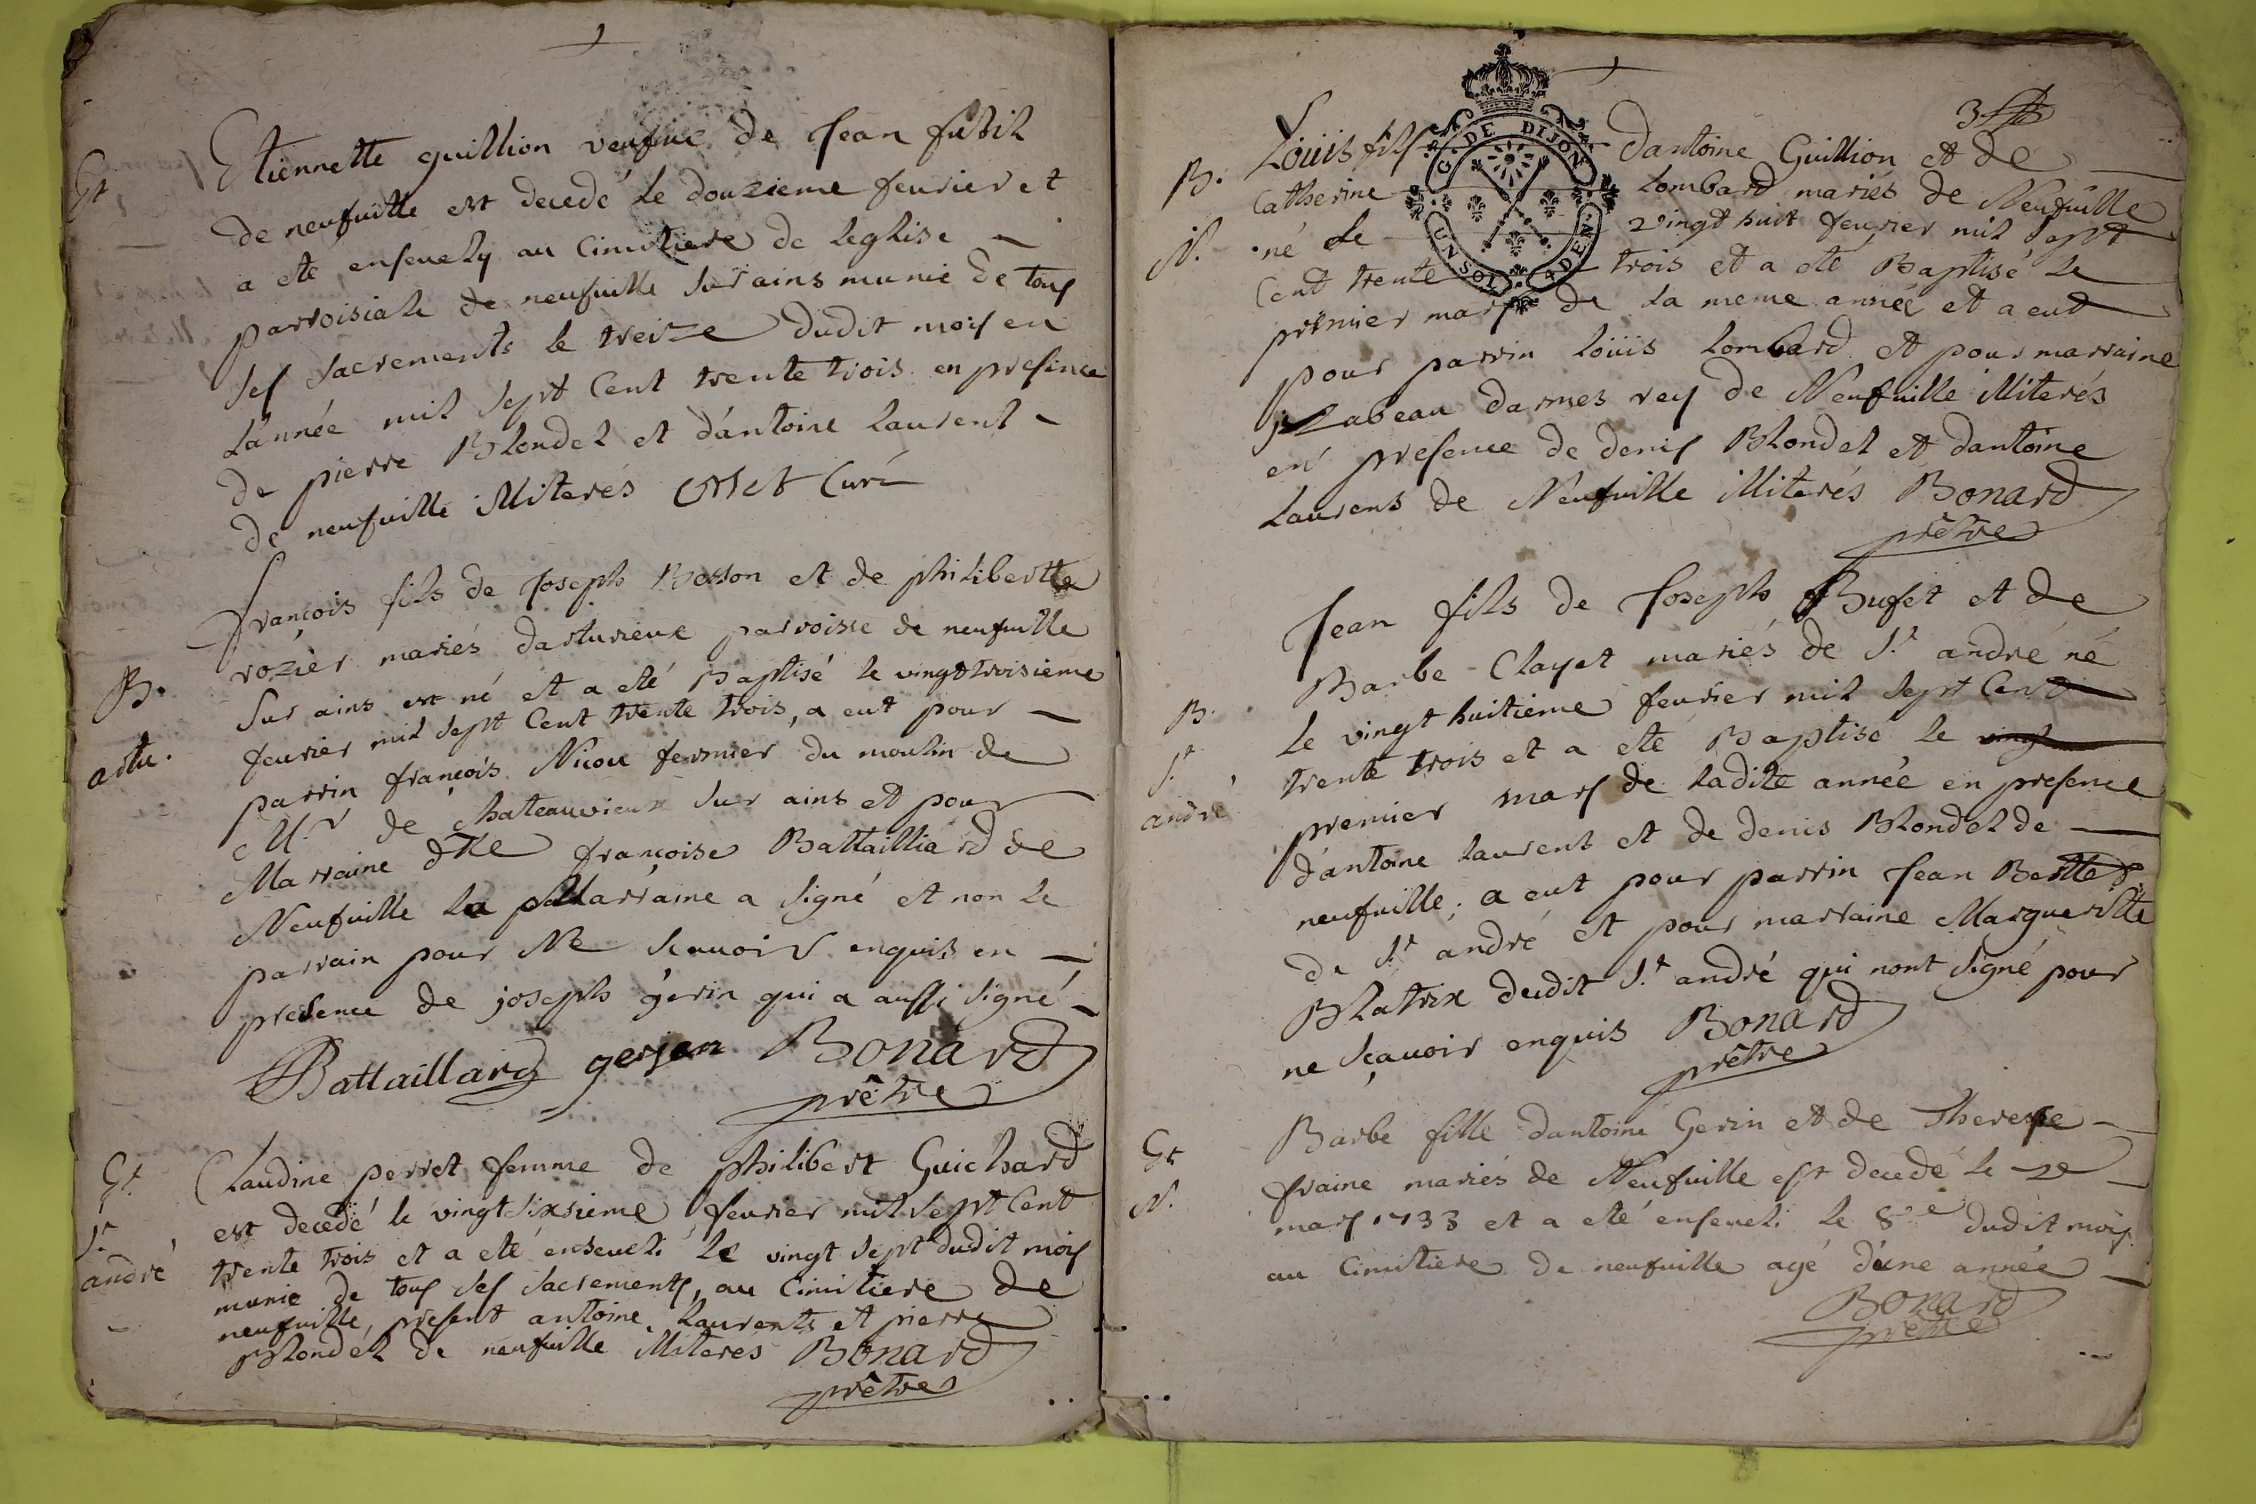 Et
Etiennette guillion veufue de Jean fusil
de neufuille est decedé le douzieme feurier et
a eté enseuely au Cimitiere de leglise
parroisiale de neufuille sur ains munie de tous
ses sacrements le treize dudit mois en
l'année mil sept Cent trente trois en presence
de pierre Blondel et d'antoine laurent
de neufuille illiterés Curé
françois fils de Joseph Besson et de philibertte
B.
rozier mariés darturieux parroisse de neufuille
artu.
sur ains est né et a eté Baptisé le vingt troisieme
feurier mil sept Cent trente trois, a eut pour
parrin françois Nicou fermier du moulin de
Mr de chateauvieux sur ains et pour
Marraine dlle françoise Battailliard de
Neufuille la Marraine a signé et non le
parrain pour Ne scauoir enquis en
presence de joseph gerin qui a aussi signé
Battaillard gerjon Bonard
prêtre
Et
St
andré
Claudine perret femme de philibert Guichard
est decedé le vingt sixsieme feurier mil sept Cent
trente trois et a eté enseueli le vingt sept dudit mois
munie de tous ses sacrements, au Cimitiere de
neufuille, present antoine laurents et pierre
Blondel de neufuille illiterés Bonard
prêtre
3
G. DE DIJON
UN SOL 4 DEN.
B.
N.
Loüis fils dantoine Guillion et de
Catherine lombard mariés de Neufuille
né le vingt huit feurier mil sept
Cent trente trois et a eté Baptisé le
premier mars de la meme année et a eut
pour parrin loüis lombard et pour marraine
jzabeau darmes rey de Neufuille illiterés
en presence de denis Blondel et dantoine
laurens de Neufuille illiterés Bonard
prêtre
Jean fils de Joseph Bufet et de
B.
St
andré
Barbe Clayet mariés de St andré né
le vingt huitieme feurier mil sept Cent
trente trois et a eté Baptisé le vingt
premier mars de ladite année en presence
d'antoine laurent et de denis Blondel de
neufuille; a eut pour parrin Jean
de St andré et pour marraine Marguerite
Blatrix dudit St andré qui nont signé pour
ne sçauoir enquis Bonard
prêtre
Et
N.
Barbe fille d'antoine Gerin et de Therese
fraine mariés de Neufuille est decedé le
mars 1733 et a eté enseueli le 8e dudit mois
au Cimitiere de neufuille agé d'une année
Bonard
prêtre